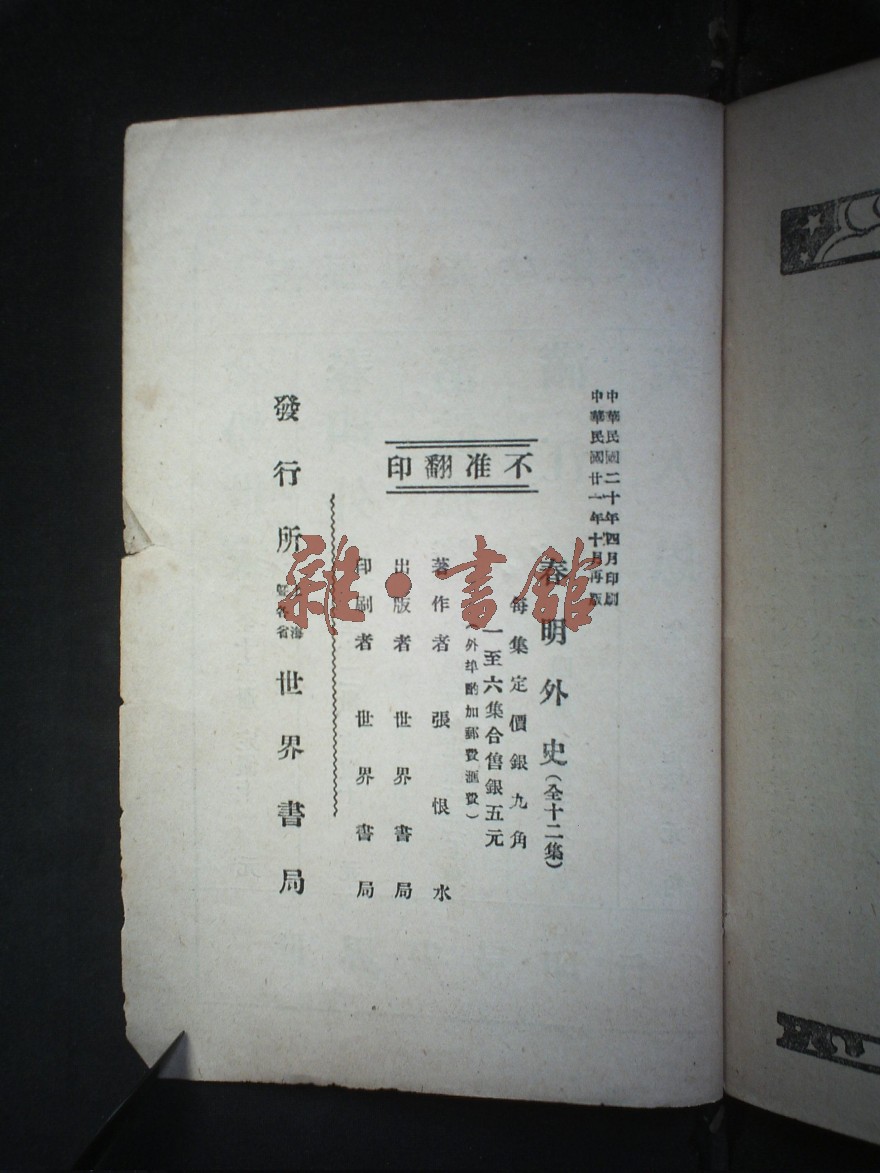 中華民國二十年四月印刷
中華民國廿一年十月再版
春明外史(全十二集)
每集定價銀九角
一至六集合售銀五元
(外埠酌加郵費滙費)
不准翻印
著作者 張恨水
出版者 世界書局
印刷者 世界書局
發行所 上海 暨各省 世界書局
雜·書館